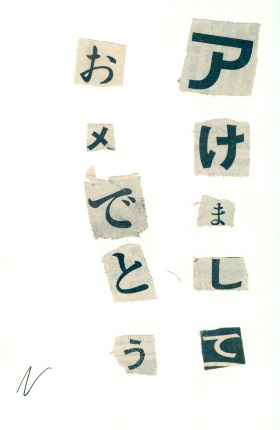 アけまして
おメでとう
N